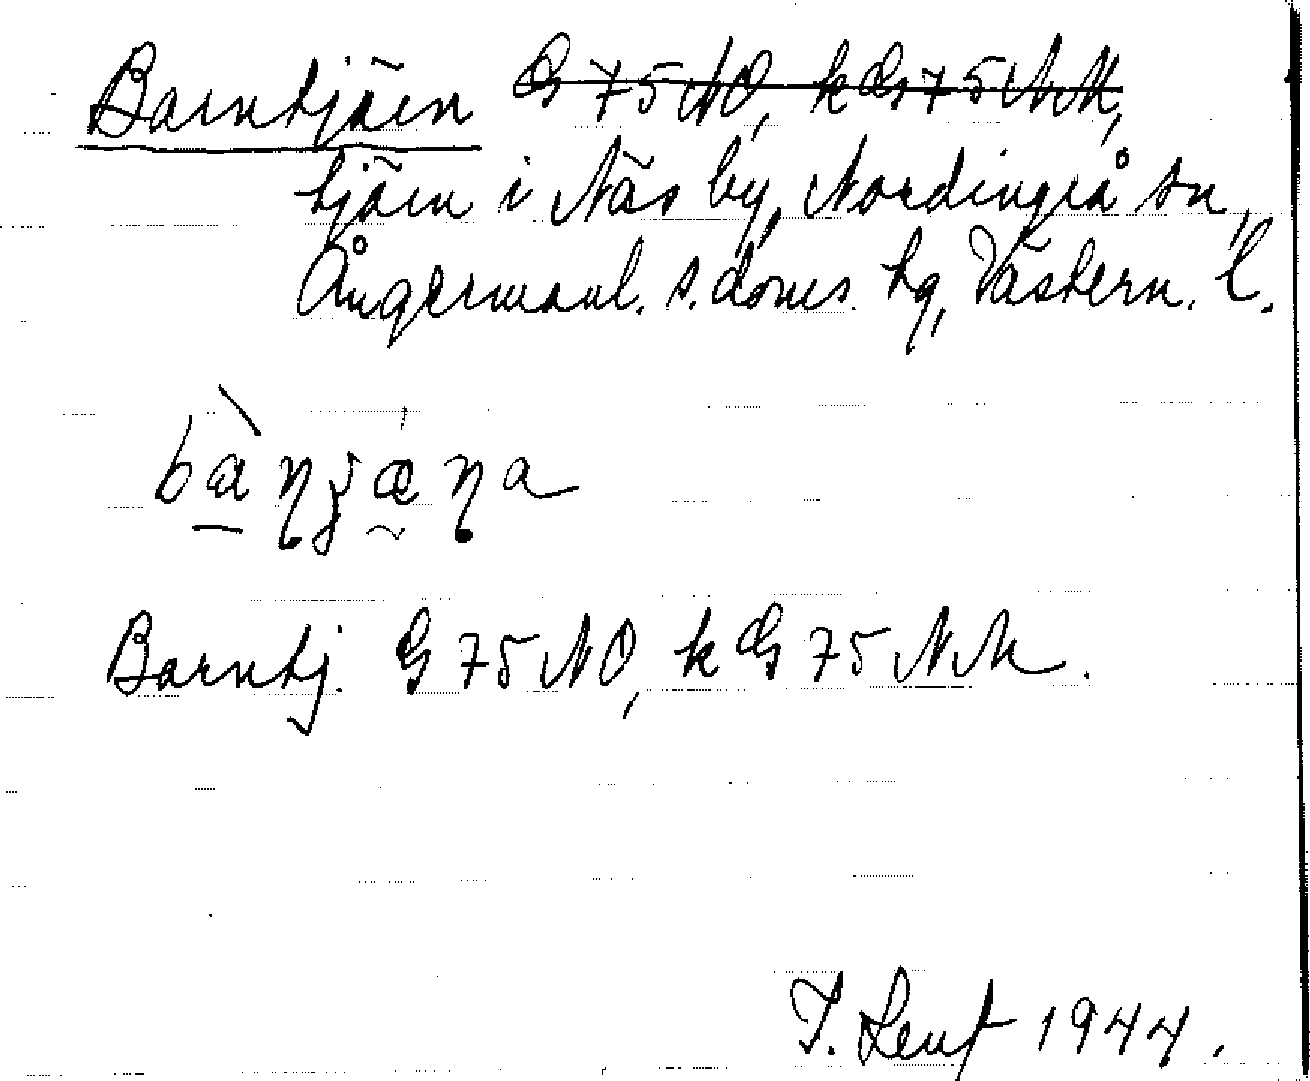 Barntjärn ~~G 75 NO, k G 75 NM,~~
tjärn i Näs by, Nordingrå sn,
Ångermanl. s. doms. hg, Västern. l.
bànjæna
Barntj. G 75 NO, k G 75 NM.
1944.